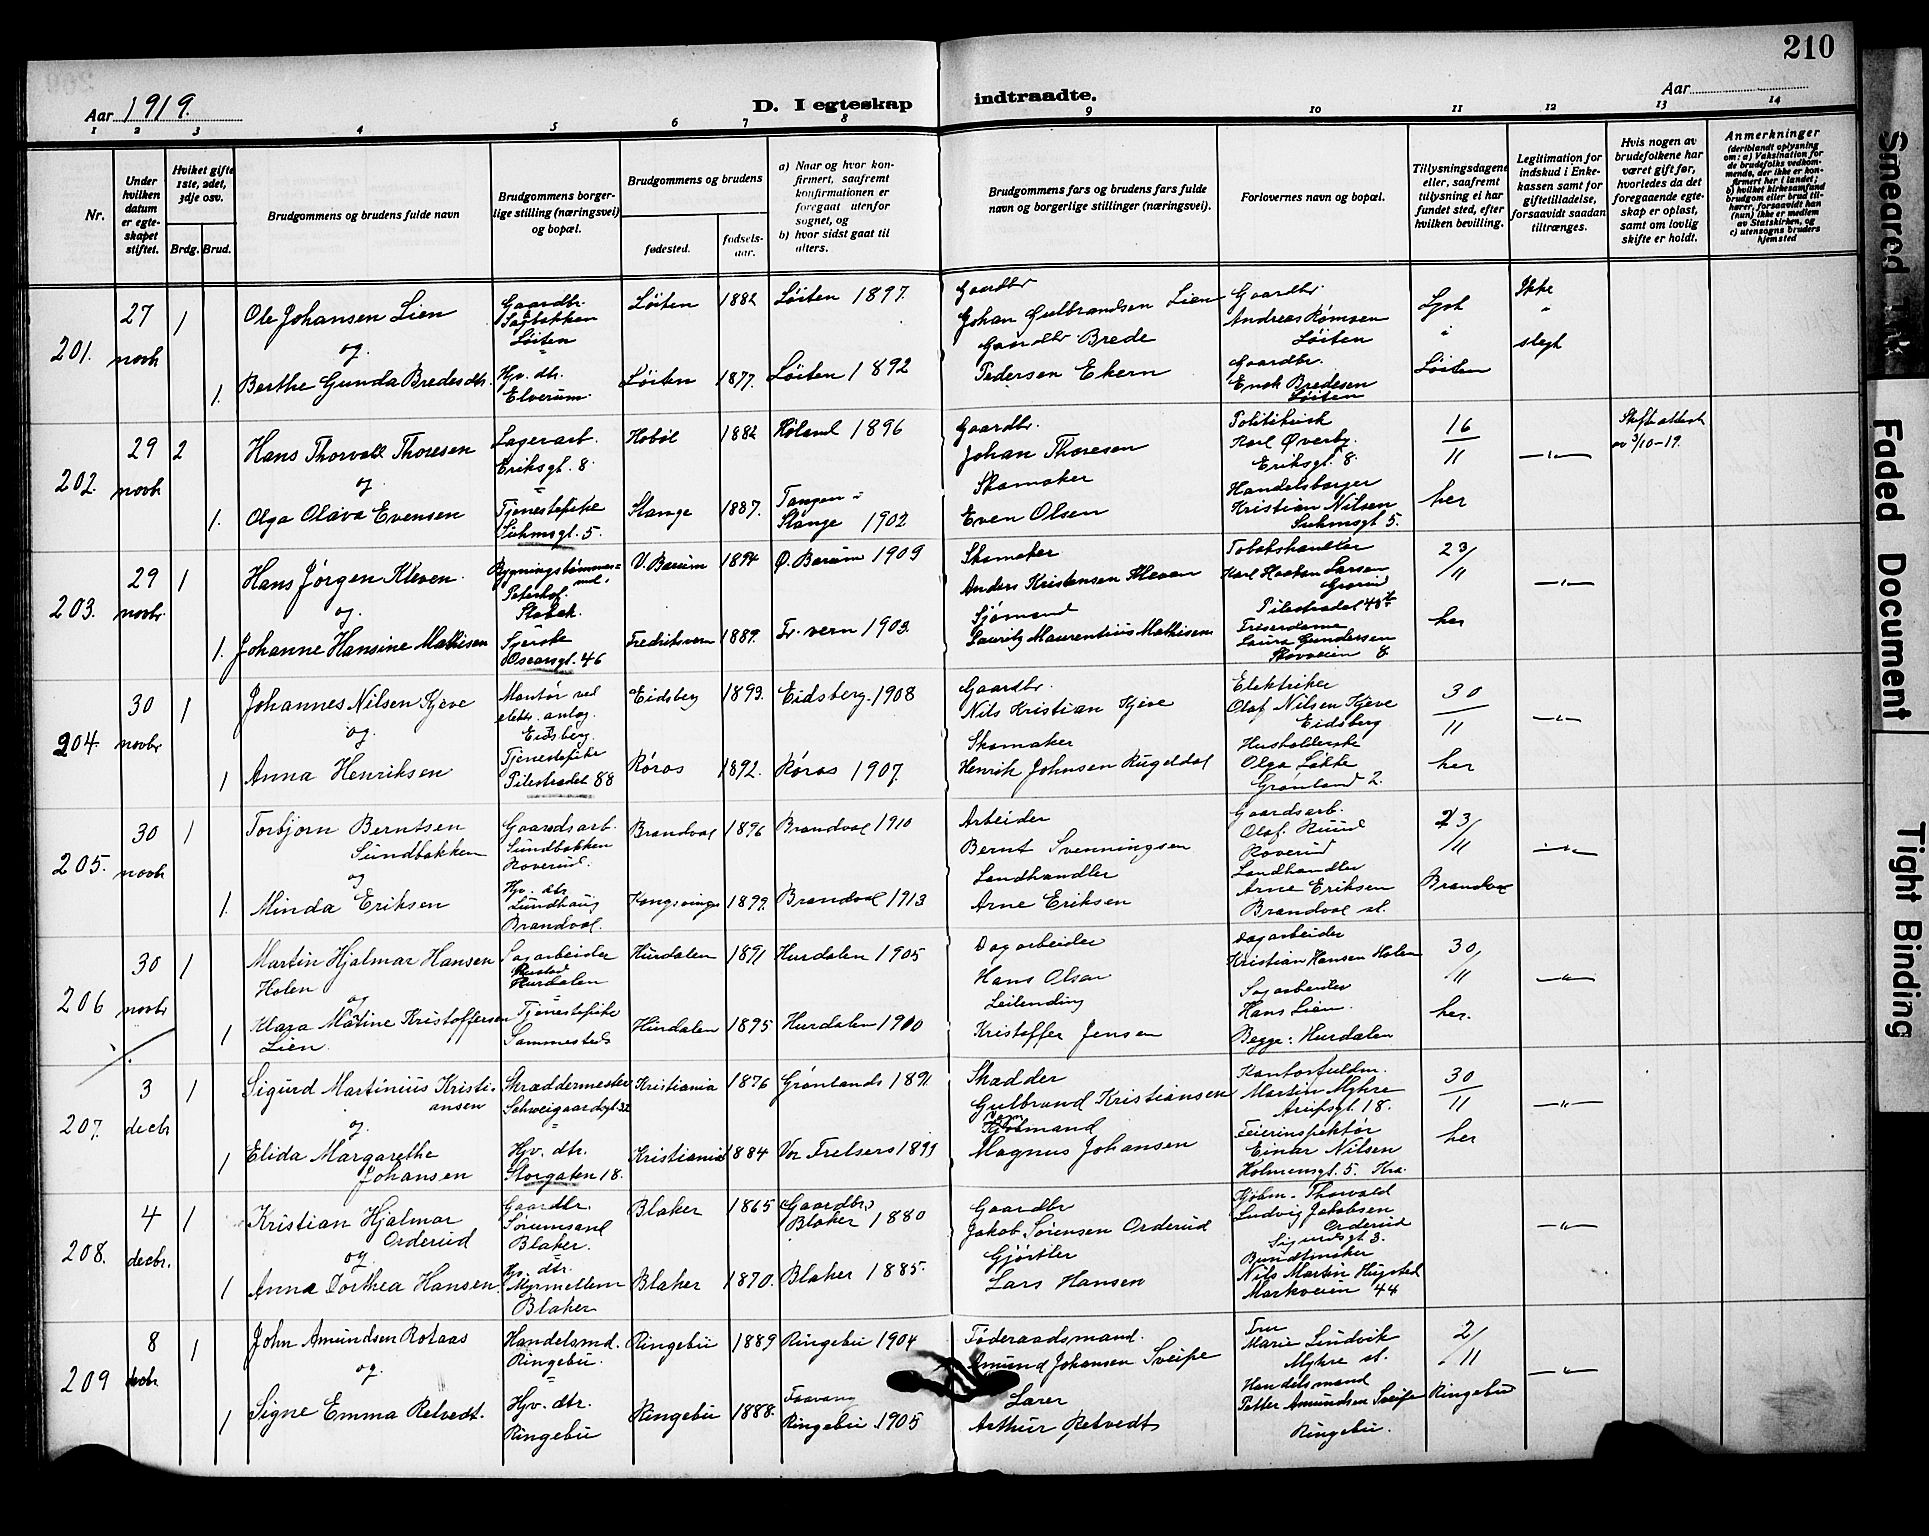 210
Aar 1919.
D. I egteskap indtraadte.
Aar
1 2 3 4 5 6 7 8 9 10 11 12 13 14
Nr.
Under hvilken datum er egteskapet stiftet.
Hvilket gifte 1ste, 2det, 3dje osv.
Brdg. Brud.
Brudgommens og brudens fulde navn
Brudgommens borgerlige stilling (næringsvei) og bopæl.
Brudgommens og brudens
fødested.
fødselsaar.
a) Naar og hvor konfirmert, saafremt konfirmationen er foregaat utenfor sognet, og
b) hvor sidst gaat til alters.
Brudgommens fars og brudens fars fulde navn og borgerlige stillinger (næringsvei).
Forlovernes navn og bopæl.
Tillysningsdagene eller, saafremt tillysning ei har fundet sted, efter hvilken bevilling.
Legitimation for indskud i Enkekassen samt for giftetilladelse, forsaavidt saadan tiltrænges.
Hvis nogen av brudefolkene har været gift før, hvorledes da det foregaaende egteskap er opløst, samt om lovlig skifte er holdt.
Anmerkninger
(deriblandt oplysning om: a) Vaksination for de brudefolks vedkommende, der ikke er konfirmert her i landet; b) hvilket kirkesamfund brudgom eller brud tilhører, forsaavidt han (hun) ikke er medlem av Statskirken, og c) utensogns bruders hjemsted
201.
27 novb
1
Ole Johansen Lien
og
Gaardbr.
Sagbakken
Løiten
Løiten 1882 Løiten 1897.
Gaardbr
Johan Gulbrandsen Lien
Gaardbr
Andreas Rømoen
Løiten
Lyst
Ikke
"
slegt
1. Berthe Gunda Bredesdtr.
Hjv. dtr.
Elverum.
Løiten 1877. Løiten 1892
Gaardbr Brede
Pedersen Ekern
Gaardbr.
Enok Bredesen
Løiten
Løiten
202.
29 novb
2
Hans Thorvall Thoresen
og
Lagerarb.
Eriksgt. 8.
Hobøl 1882 Høland 1896
Gaardbr.
Johan Thoresen
Karl Øverby.
Eriksgt. 8.
16/11
—"—
Skifteattest
av 3/10-19.
1. Olga Olava Evensen
Tjenestepike
Suhmsgt. 5.
Stange 1887. Tangen =
Stange 1902
Skomaker
Even Olsen
Handelsborger
Kristian Nilsen
Suhmsgt 5.
her
203.
29 novbr.
1
Hans Jørgen Kleven.
og.
Stabæk.
V. Bærum 1894 Ø. Bærum 1909
Skomaker
Anders Kristensen Kleven
Tobakshandler
Karl Haakon Larsen
Pilestrædet
23/11
—"—
1. Johanne Hansine Mathisen
Syerske
Oscarsgt. 46
Fredriksvern 1889. Fr. vern 1903.
Sjømand
Lauritz Maurentius Mathisen
Frisørdame
Laura Gundersen
8.
her
204.
30 novbr
1
Johannes Nilsen Kjeve
og.
Montør ved
elektr. anlæg.
Eidsberg.
Eidsberg 1893. Eidsberg. 1908
Gaardbr.
Nils Kristian Kjeve
Elektriker
Olaf Nilsen Kjeve
Eidsberg
30/11
—"—
1 Anna Henriksen
Tjenestepike
Pilestrædet 88
Røros 1892. Røros 1907.
Skomaker
Henrik Johnsen Rugeldal
Husholderske
Olga Løkke
Grønland 2.
her
205.
30 novb
1
Torbjørn Berntsen
Sundbakken
og
Gaardsarb.
Sundbakken
Roverud.
Brandval 1896 Brandval 1910
Arbeider
Bernt Svenningsen
Gaardsarb.
Olaf Ruud
Roverud
23/11
—"—
1. Minda Eriksen
Hjv. dtr
Lundhaug
Brandval.
Kongsvinger 1899. Brandval 1913
Landhandler
Arne Eriksen
Landhandler
Arne Eriksen
Brandval st.
Brandval
206
30 novbr
1
Martin Hjalmar Hansen
Holen
og
Sagarbeider
Hurdalen
Hurdalen 1891 Hurdalen 1905
Dagarbeider
Hans Olsen
Dagarbeider
Kristian Hansen Holen
30/11
—"—
1 Klara Matine Kristoffersen
Lien.
Tjenestepike
Sammesteds
Hurdalen 1895 Hurdalen 1910
Leilending
Kristoffer Jensen
Sagarbeider
Hans Lien.
Begge: Hurdalen
her.
207.
3 decbr
1
Sigurd Martinius Kristiansen
og.
Skræddermester
Schweigaardsgt 32
Kristiania 1876 Grønlands 1891
Skrædder
Gulbrand Kristiansen
Kontorfuldm.
Martin Myhre
Arupsgt. 18.
30/11
—"—
1 Elida Margarethe
Johansen
Hjv. dtr.
Storgaten 18.
Kristiania 1884 Vor Frelsers 1899
Magnus Johansen
Feierinspektør
Einar Nilsen
Holmensgt. 5. Kra.
her
208.
4 decbr.
1
Kristian Hjalmar
Orderud
og
Gaardbr.
Sørumsand
Blaker.
Blaker 1865 (Gaardbr.)
Blaker 1880
Gaardbr
Jakob Sørensen Orderud
Kjøbm. Thorvald
Ludvig Jakobsen
Orderud
Sigurdsgt 3.
—"—
1 Anna Dorthea Hansen
Hjv. dtr.
Myrmellem
Blaker
Blaker 1870. Blaker 1885.
Gjørtler
Lars Hansen
Buntmaker
Nils Martin Hugsted
Markveien 44
209
8 decbr
1
John Amundsen Rolaas
og.
Handelsmd.
Ringebu.
Ringebu 1889 Ringebu 1904
Føderaadsmand.
Amund Johansen Sveipe
Fru
Marie Lindvik
Myhre st.
2/11
—"—
1 Signe Emma Retvedt.
Hjv. dtr.
Ringebu
Ringebu 1888. Faavang
Ringebu 1905
Lærer
Arthur Retvedt
Handelsmand
Petter Amundsen Sveipe
Ringebu.
Ringebu
Smeared Ink
Faded Document
Tight Binding